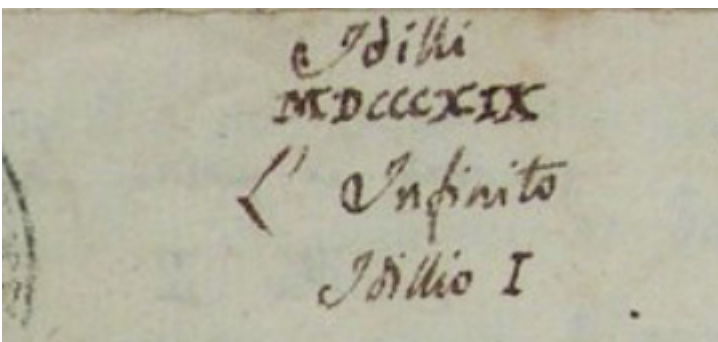 Idilli
MDCCCXIX
L' Infinito
Idillio I